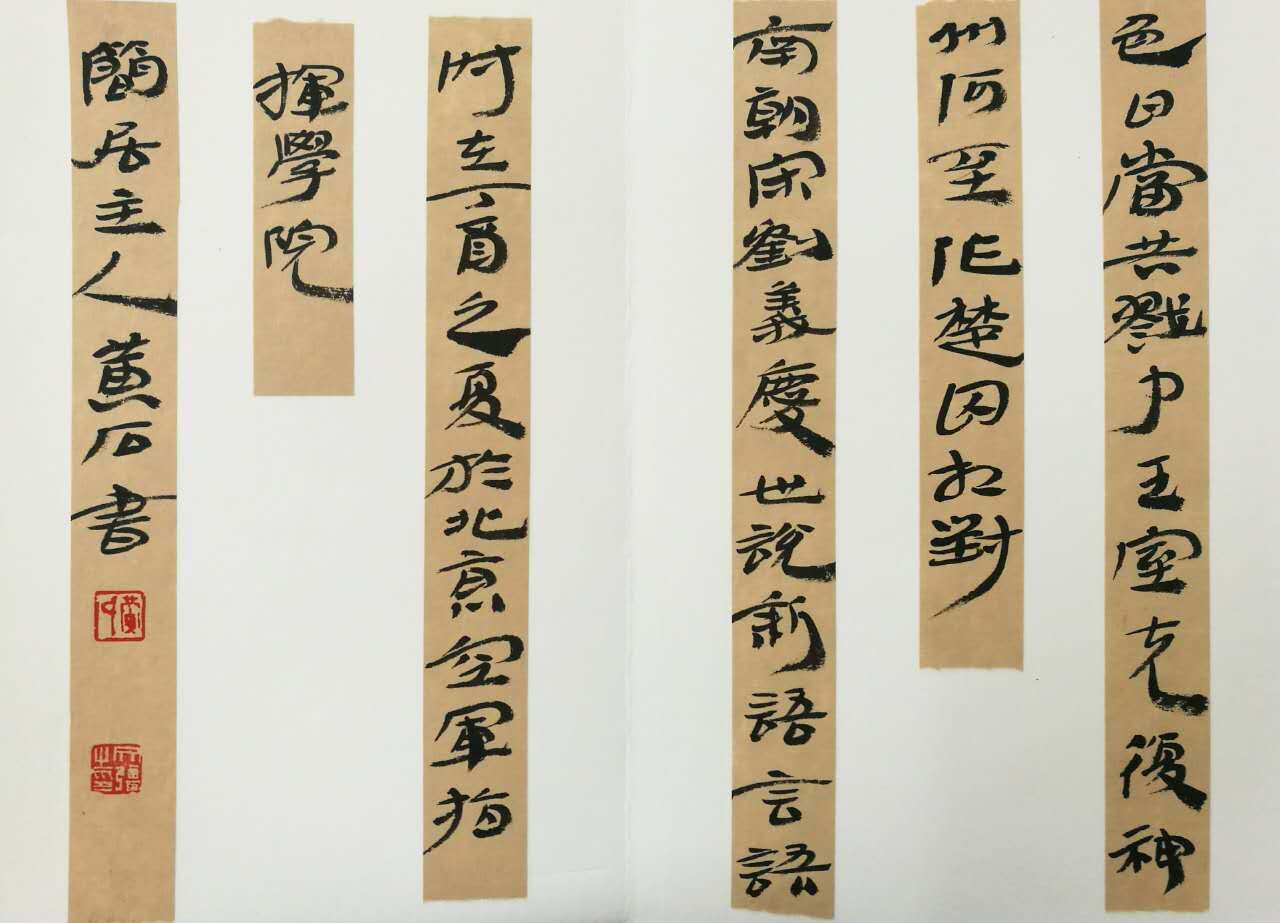 色曰當共戮力王室克復神
州何至作楚囚相對
南朝宋劉義慶世說新語言語
時在丁酉之夏於北京空軍指
揮學院
簡居主人黃石書